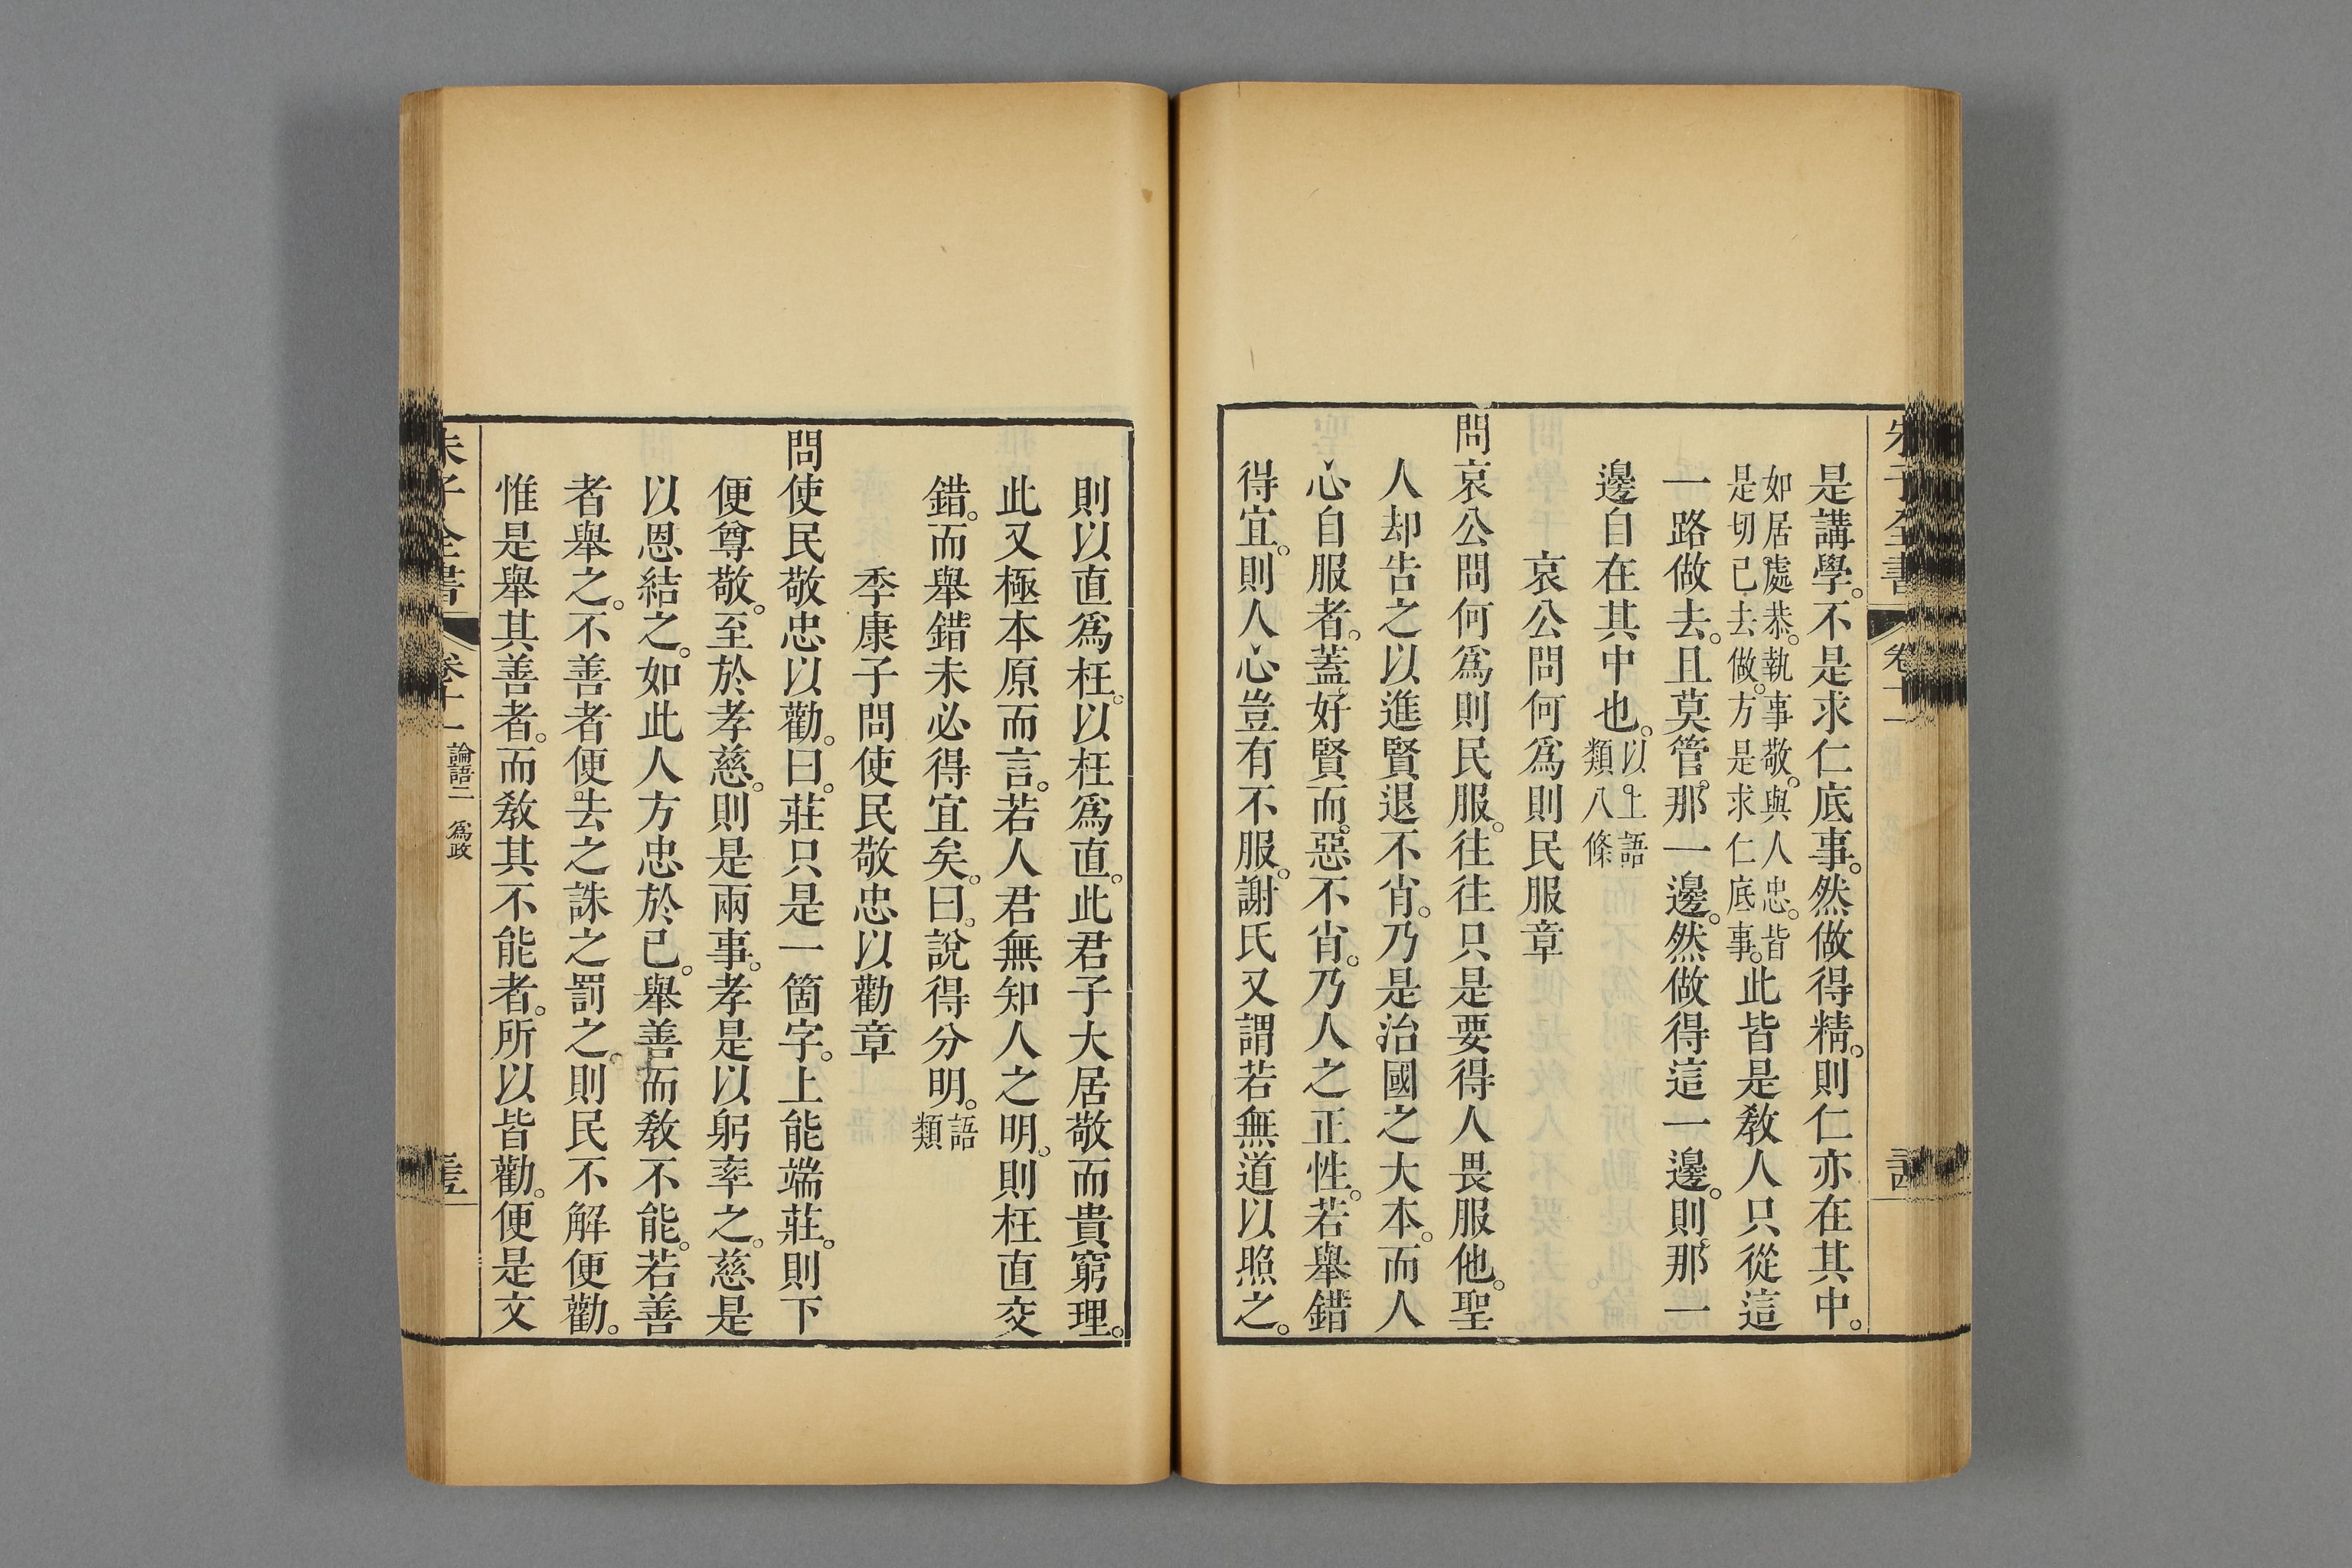 是講學。不是求仁底事。然做得精。則仁亦在其中。
如居處恭。執事敬。與人忠。皆
是切己去做。方是求仁底事。
此皆是敎人只從這
一路做去。且莫管那一邊。然做得這一邊。則那一
邊自在其中也。
以上語
類八條
哀公問何爲則民服章
問哀公問何爲則民服。往往只是要得人畏服他。聖
人却告之以進賢退不肖。乃是治國之大本。而人
心自服者。蓋好賢而惡不肖。乃人之正性。若舉錯
得宜。則人心豈有不服。謝氏又謂若無道以照之。
則以直爲枉。以枉爲直。此君子大居敬而貴窮理。
此又極本原而言。若人君無知人之明。則枉直交
錯。而舉錯未必得宜矣。曰。說得分明。
語
類
季康子問使民敬忠以勸章
問使民敬忠以勸。曰。莊只是一箇字。上能端莊。則下
便尊敬。至於孝慈。則是兩事。孝是以躬率之。慈是
以恩結之。如此人方忠於己。舉善而敎不能。若善
者舉之。不善者便去之誅之罰之。則民不解便勸。
惟是舉其善者。而敎其不能者。所以皆勸。便是文
朱子全書
卷十一
論語二 爲政